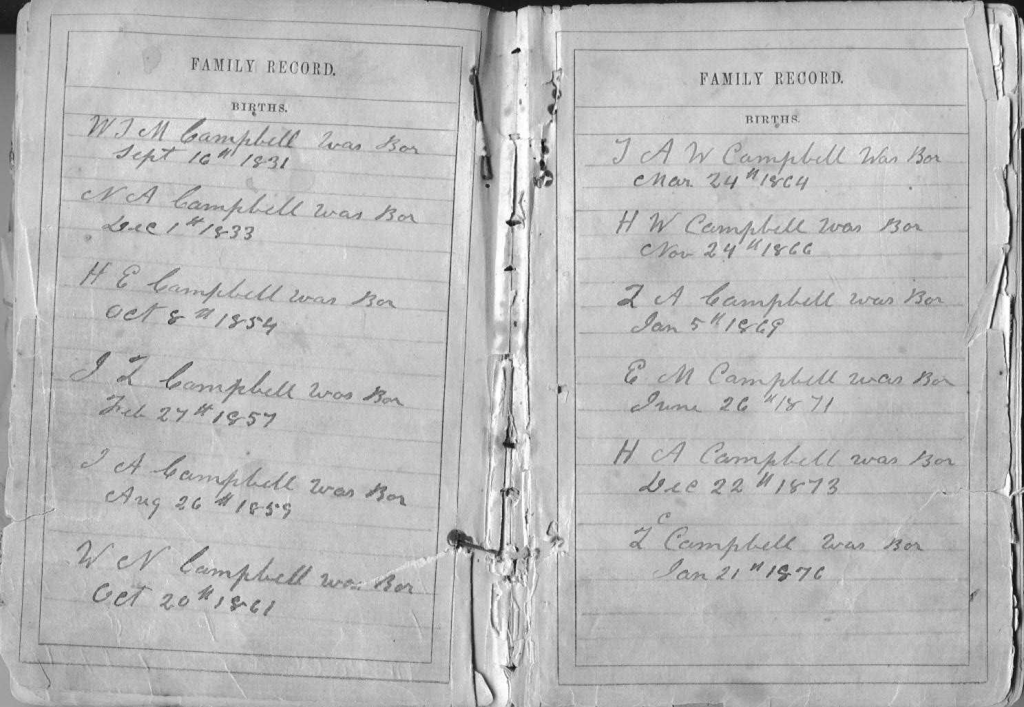 FAMILY RECORD.
BIRTHS.
W J M Campbell was Bor
Sept 16th 1831
N A Campbell was Bor
Dec 1st 1833
H E Campbell was Bor
Oct 8th 1854
J L Campbell was Bor
Feb 27th 1857
J A Campbell was Bor
Aug 26th 1859
W N Campbell was Bor
Oct 20th 1861
FAMILY RECORD.
BIRTHS.
J A W Campbell Was Bor
Mar 24th 1864
H W Campbell was Bor
Nov 24th 1866
L A Campbell was Bor
Jan 5th 1869
E M Campbell was Bor
June 26th 1871
H A Campbell was Bor
Dec 22th 1873
L C Campbell was Bor
Jan 21th 1876